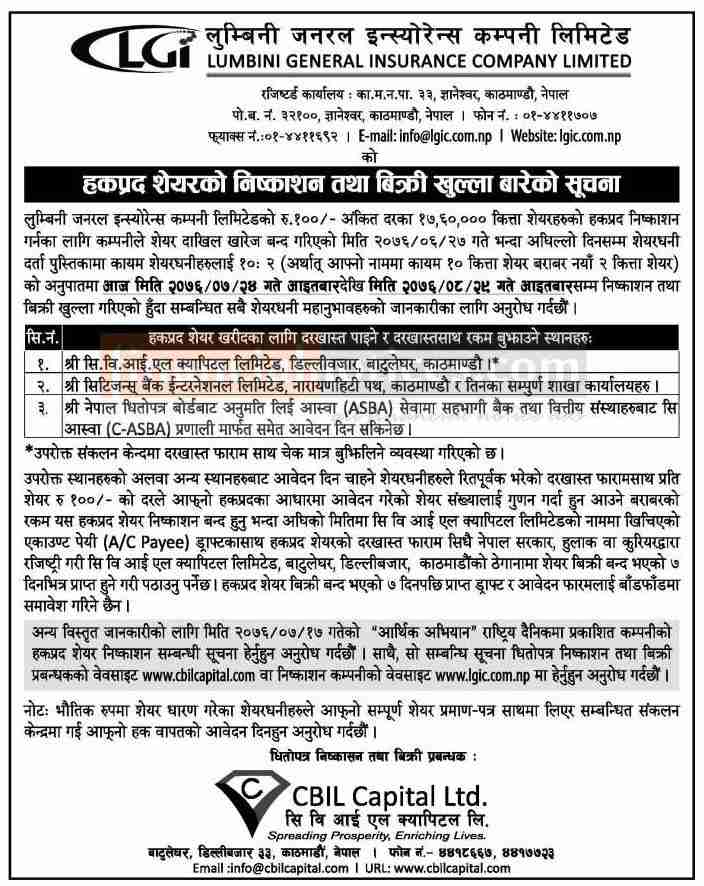 LGI लुम्बिनी जनरल इन्स्योरेन्स कम्पनी लिमिटेड
LUMBINI GENERAL INSURANCE COMPANY LIMITED
रजिष्टर्ड कार्यालय : का.म.न.पा. ३३, ज्ञानेश्वर, काठमाण्डौ, नेपाल
पो.ब. नं. ३२१००, ज्ञानेश्वर, काठमाण्डौ, नेपाल । फोन नं. : ०१-४४११७०७
फ्याक्स नं.:०१-४४११६९२ । E-mail: info@lgic.com.np | Website: lgic.com.np
को
हकप्रद शेयरको निष्काशन तथा बिक्री खुल्ला बारेको सूचना
लुम्बिनी जनरल इन्स्योरेन्स कम्पनी लिमिटेडको रु.१००/- अंकित दरका १७,६०,००० कित्ता शेयरहरुको हकप्रद निष्काशन
गर्नका लागि कम्पनीले शेयर दाखिल खारेज बन्द गरिएको मिति २०७६/०६/२७ गते भन्दा अघिल्लो दिनसम्म शेयरधनी
दर्ता पुस्तिकामा कायम शेयरधनीहरुलाई १०: २ (अर्थात् आफ्नो नाममा कायम १० कित्ता शेयर बराबर नयाँ २ कित्ता शेयर)
को अनुपातमा आज मिति २०७६/०७/२४ गते आइतबारदेखि मिति २०७६/०८/२९ गते आइतबारसम्म निष्काशन तथा
बिक्री खुल्ला गरिएको हुँदा सम्बन्धित सबै शेयरधनी महानुभावहरुको जानकारीका लागि अनुरोध गर्दछौं ।
सि.नं. हकप्रद शेयर खरीदका लागि दरखास्त पाइने र दरखास्तसाथ रकम बुझाउने स्थानहरुः
१. श्री सि.वि.आई.एल क्यापिटल लिमिटेड, डिल्लीवजार, बाटुलेघर, काठमाण्डौ ।*
२. श्री सिटिजन्स् बैंक ईन्टरनेशनल लिमिटेड, नारायणहिटी पथ, काठमाण्डौ र तिनका सम्पुर्ण शाखा कार्यालयहरु ।
३. श्री नेपाल धितोपत्र बोर्डबाट अनुमति लिई आस्वा (ASBA) सेवामा सहभागी बैंक तथा वित्तीय संस्थाहरुबाट सि
आस्वा (C-ASBA) प्रणाली मार्फत समेत आवेदन दिन सकिनेछ ।
*उपरोक्त संकलन केन्दमा दरखास्त फाराम साथ चेक मात्र बुझिलिने व्यवस्था गरिएको छ ।
उपरोक्त स्थानहरुको अलवा अन्य स्थानहरुबाट आवेदन दिन चाहने शेयरधनीहरुले रितपूर्वक भरेको दरखास्त फारामसाथ प्रति
शेयर रु १००/- को दरले आफ्‌नो हकप्रदका आधारमा आवेदन गरेको शेयर संख्यालाई गुणन गर्दा हुन आउने बराबरको
रकम यस हकप्रद शेयर निष्काशन बन्द हुनु भन्दा अघिको मितिमा सि वि आई एल क्यापिटल लिमिटेडको नाममा खिचिएको
एकाउण्ट पेयी (A/C Payee) ड्राफ्टकासाथ हकप्रद शेयरको दरखास्त फाराम सिधै नेपाल सरकार, हुलाक वा कुरियरद्वारा
रजिष्ट्री गरी सि वि आई एल क्यापिटल लिमिटेड, बाटुलेघर, डिल्लीबजार, काठमाडौंको ठेगानामा शेयर बिक्री बन्द भएको ७
दिनभित्र प्राप्त हुने गरी पठाउनु पर्नेछ । हकप्रद शेयर बिक्री बन्द भएको ७ दिनपछि प्राप्त ड्राफ्ट र आवेदन फारमलाई बाँडफाँडमा
समावेश गरिने छैन ।
अन्य विस्तृत जानकारीको लागि मिति २०७६/०७/१७ गतेको “आर्थिक अभियान” राष्ट्रिय दैनिकमा प्रकाशित कम्पनीको
हकप्रद शेयर निष्काशन सम्बन्धी सूचना हेर्नुहुन अनुरोध गर्दछौं । साथै, सो सम्बन्धि सूचना धितोपत्र निष्काशन तथा बिक्री
प्रबन्धकको वेवसाइट www.cbilcapital.com वा निष्काशन कम्पनीको वेवसाइट www.lgic.com.np मा हेर्नुहुन अनुरोध गर्दछौं ।
नोटः भौतिक रुपमा शेयर धारण गरेका शेयरधनीहरुले आफूनो सम्पूर्ण शेयर प्रमाण-पत्र साथमा लिएर सम्बन्धित संकलन
केन्द्रमा गई आफूनो हक वापतको आवेदन दिनहुन अनुरोध गर्दछौं ।
धितोपत्र निष्कासन तथा बिक्री प्रबन्धक :
C CBIL Capital Ltd.
सि वि आई एल क्यापिटल लि.
Spreading Prosperity, Enriching Lives.
बाटुलेघर, डिल्लीबजार ३३, काठमाडौं, नेपाल । फोन नं.- ४४१८६६७, ४४१७७२३
Email :info@cbilcapital.com | URL: www.cbilcapital.com